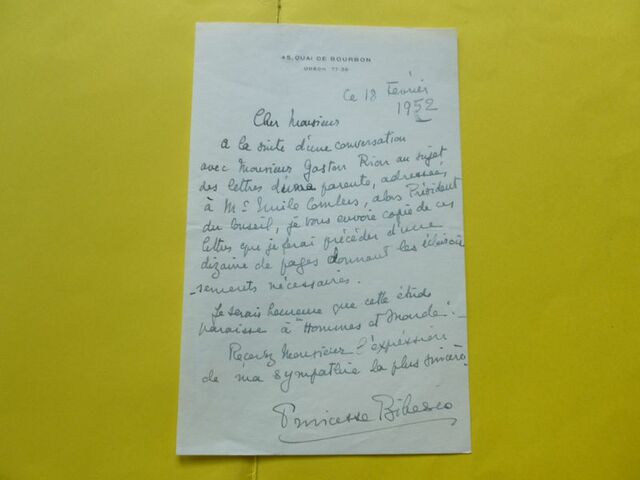 45, QUAI DE BOURBON
ODÉON 77-38
Ce 18 Février
1952
Cher Monsieur
a la suite d'une conversation
avec Monsieur Gaston Riou au sujet
des lettres d'une parente, adressées,
à Mr Emile Combes, alors Président
du Conseil, je vous envoie copie de ces
lettres que je ferai précéder d'une
dizaine de pages donnant les éclaircis
-sements nécessaires.
Je serais heureuse que cette étude
paraisse à "Hommes et Monde".
Recevez Monsieur l'expréssion
de ma sympathie la plus sincère.
Princesse Bibesco